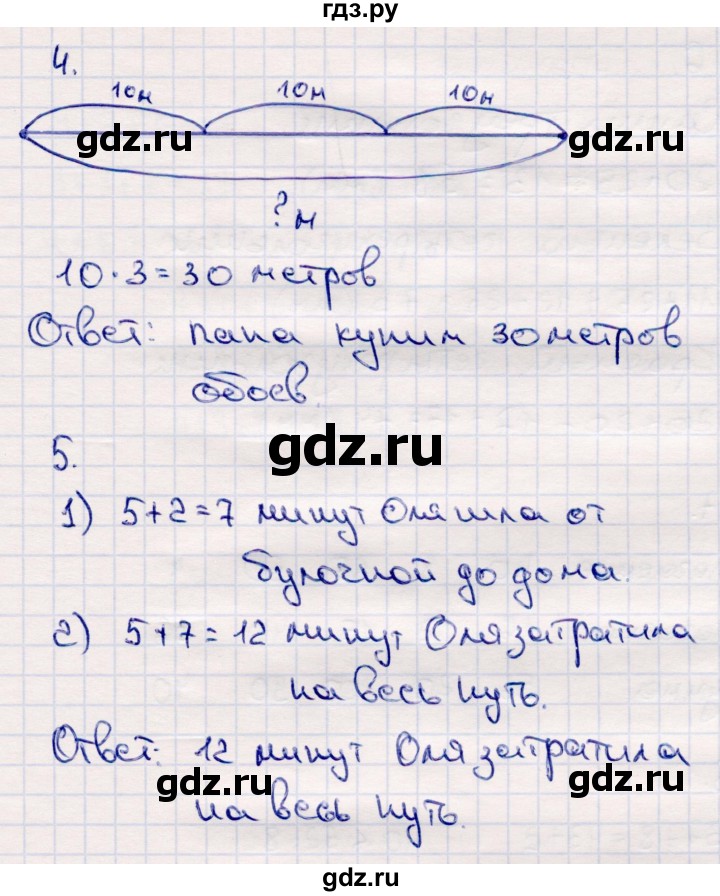 гдз.ру
4.
10м 10м 10м
gdz.ru gdz.ru
? м
10 · 3 = 30 метров
Ответ: папа купил 30 метров
обоев.
gdz.ru
5.
1) 5+2=7 минут Оля шла от
булочной до дома.
2) 5+7=12 минут Оля затратила
на весь путь.
Ответ: 12 минут Оля затратила
gdz.ru gdz.ru
на весь путь.
gdz.ru